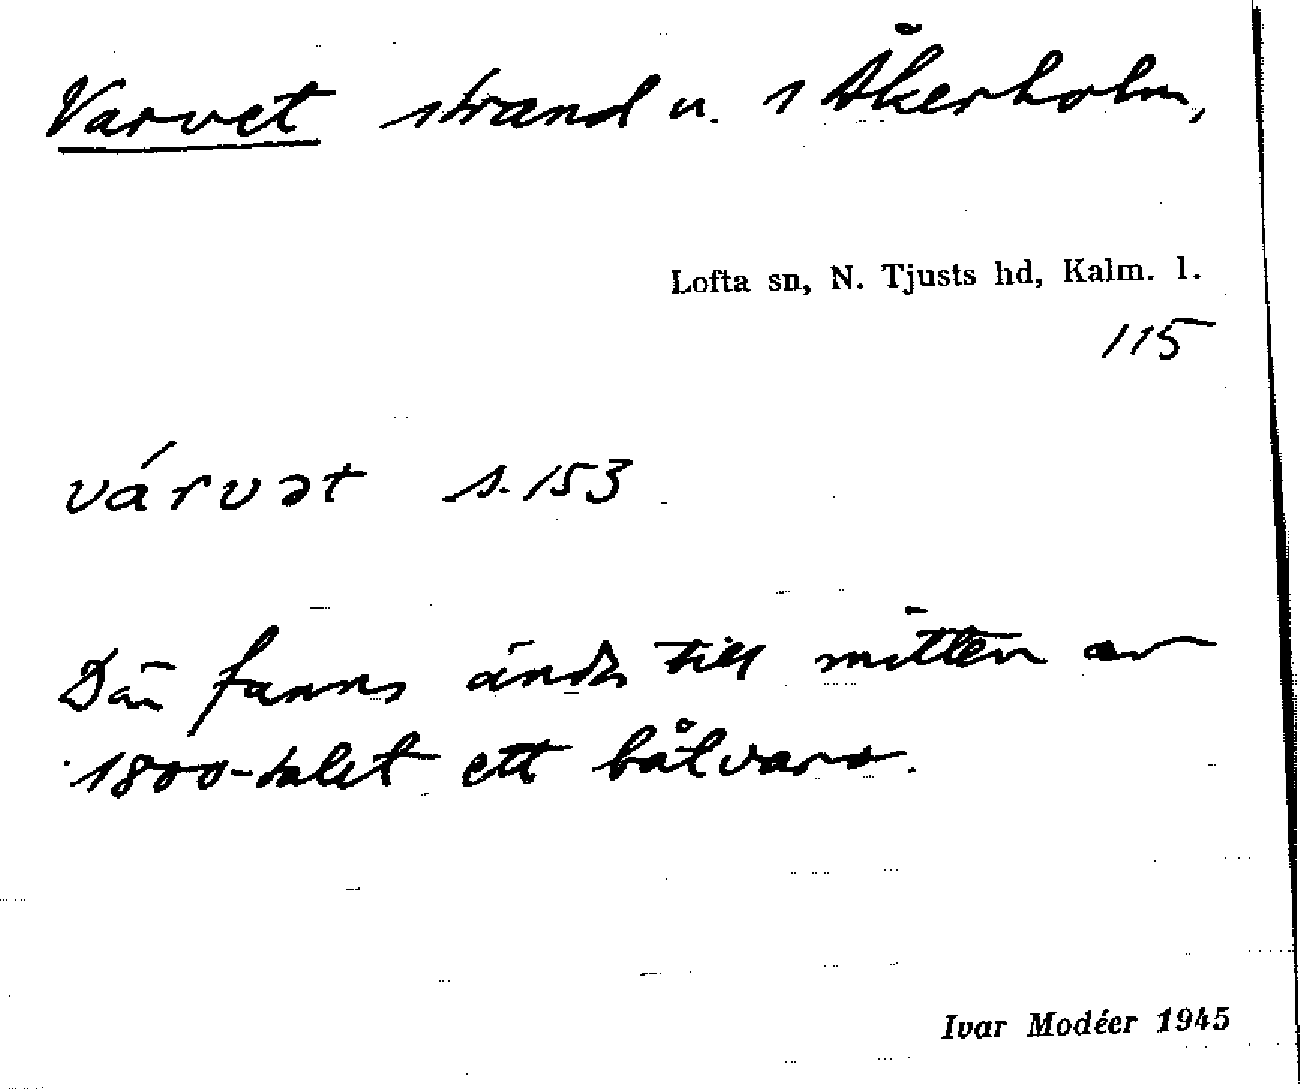 Varvet strand u. s Åkerholm,
Lofta sn, N. Tjusts hd, Kalm. l.
115
várvət s. 153
Där fanns ända till mitten av
1800-talet ett båtvarv.
Ivar Modéer 1945